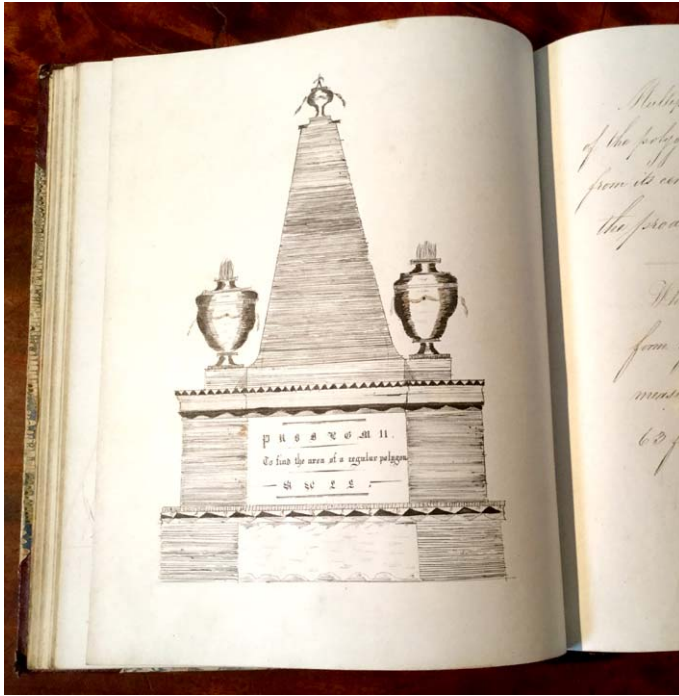 PROBLEM II.
To find the area of a regular polygon.
RULE.
Multip
of the polyg
from its cen
the prod
Wh
form
meas
63 f